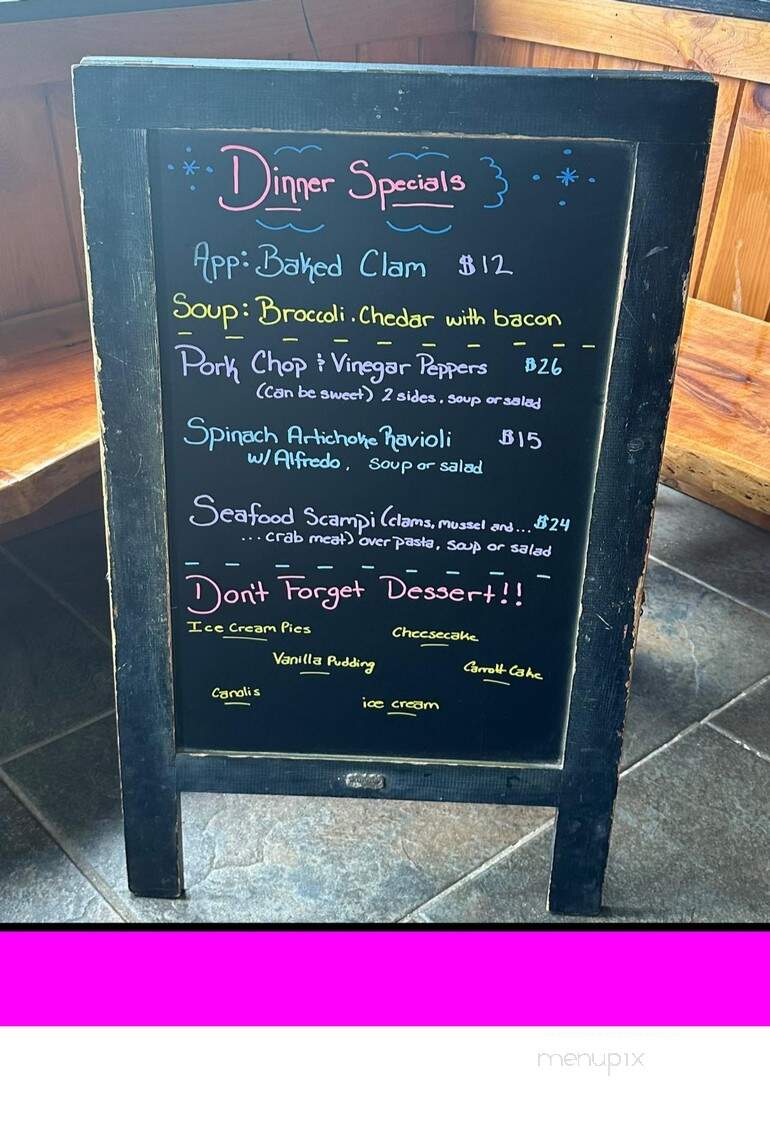 Dinner Specials
App: Baked Clam $12
Soup: Broccoli. Chedar with bacon
Pork Chop & Vinegar Peppers $26
(Can be sweet) 2 sides, soup or salad
Spinach Artichoke Ravioli $15
w/ Alfredo, soup or salad
Seafood Scampi (clams, mussel and... $24
... crab meat) over pasta, soup or salad
Don't Forget Dessert!!
Ice Cream Pies Cheesecake
Vanilla Pudding Carrott Cake
Canolis ice cream
menupix